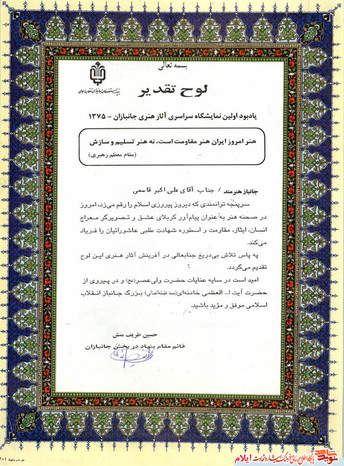 بسمه تعالی
لوح تقدیر
یادبود اولین نمایشگاه سراسری آثار هنری جانبازان - ۱۳۷۵
هنر امروز ایران هنر مقاومت است، نه هنر تسلیم و سازش
(مقام معظم رهبری)
جانباز هنرمند / جناب آقای علی اکبر قاسمی
سرپنجه توانمندی که دیروز پیروزی اسلام را رقم می‌زد، امروز
در صحنه هنر به عنوان پیام‌آور کربلای عشق و تصویرگر معراج
انسان، ایثار، مقاومت و اسطوره شهادت طلبی عاشورائیان را فریاد
می‌کند.
به پاس تلاش بی‌دریغ جنابعالی در آفرینش آثار هنری این لوح
تقدیم می‌گردد.
امید است در سایه عنایات حضرت ولی‌عصر(عج) و در پیروی از
حضرت آیت ا... العظمی خامنه‌ای(مد ظله‌العالی) بزرگ جانباز انقلاب
اسلامی موفق و مؤید باشید.
حسین ظریف منش
قائم مقام بنیاد در بخش جانبازان
ایلام